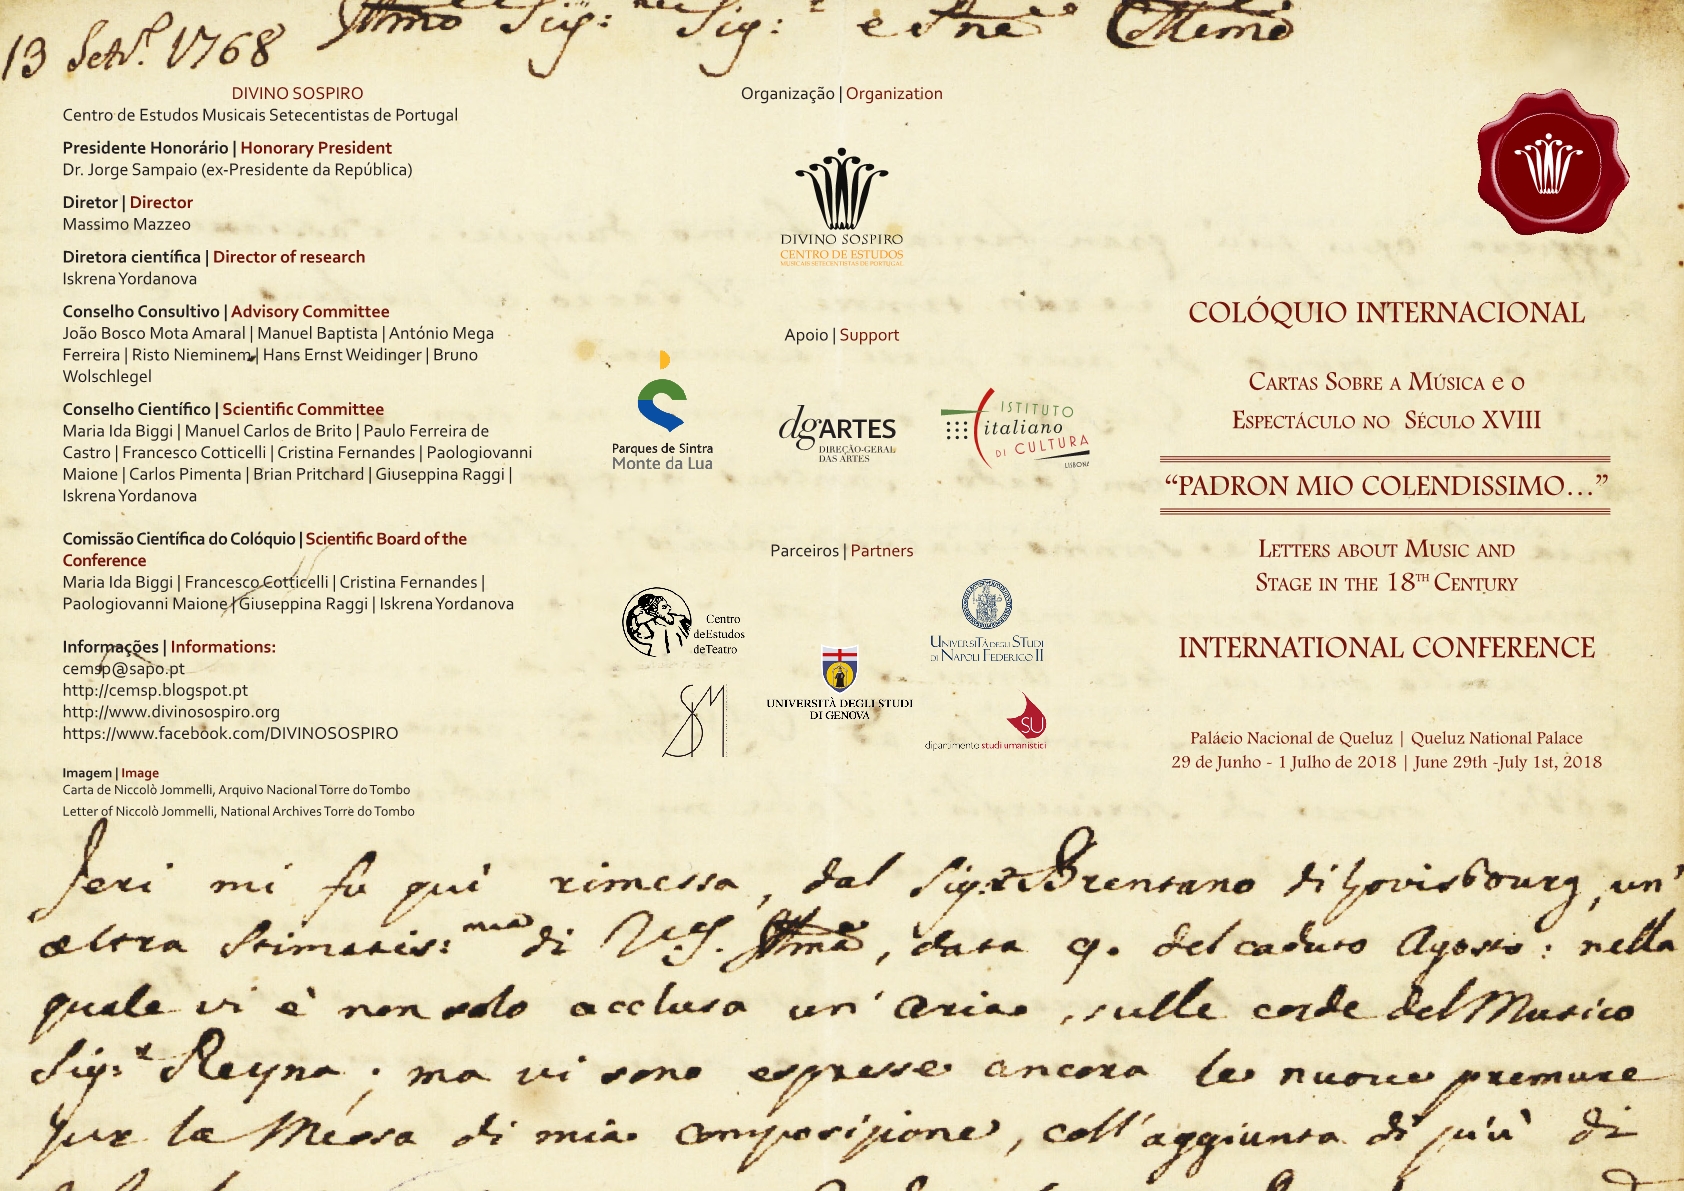 13 Sett.e 1768
DIVINO SOSPIRO
Centro de Estudos Musicais Setecentistas de Portugal
Presidente Honorário | Honorary President
Dr. Jorge Sampaio (ex-Presidente da República)
Diretor | Director
Massimo Mazzeo
Diretora científica | Director of research
Iskrena Yordanova
Conselho Consultivo | Advisory Committee
João Bosco Mota Amaral | Manuel Baptista | António Mega
Ferreira | Risto Nieminem | Hans Ernst Weidinger | Bruno
Wolschlegel
Conselho Científico | Scientific Committee
Maria Ida Biggi | Manuel Carlos de Brito | Paulo Ferreira de
Castro | Francesco Cotticelli | Cristina Fernandes | Paologiovanni
Maione | Carlos Pimenta | Brian Pritchard | Giuseppina Raggi |
Iskrena Yordanova
Comissão Científica do Colóquio | Scientific Board of the
Conference
Maria Ida Biggi | Francesco Cotticelli | Cristina Fernandes |
Paologiovanni Maione | Giuseppina Raggi | Iskrena Yordanova
Informações | Informations:
cemsp@sapo.pt
http://cemsp.blogspot.pt
http://www.divinosospiro.org
https://www.facebook.com/DIVINOSOSPIRO
Imagem | Image
Carta de Niccolò Jommelli, Arquivo Nacional Torre do Tombo
Letter of Niccolò Jommelli, National Archives Torre do Tombo
Organização | Organization
DIVINO SOSPIRO
CENTRO DE ESTUDOS
MUSICAIS SETECENTISTAS DE PORTUGAL
Apoio | Support
Parques de Sintra
Monte da Lua
dgARTES
DIREÇÃO-GERAL
DAS ARTES
ISTITUTO
italiano
DI CULTURA
LISBONA
Parceiros | Partners
Centro
deEstudos
deTeatro
UNIVERSITÀ DEGLI STUDI
DI NAPOLI FEDERICO II
UNIVERSITÀ DEGLI STUDI
DI GENOVA
SM
SU
dipartimento studi umanistici
COLÓQUIO INTERNACIONAL
CARTAS SOBRE A MÚSICA e o
ESPECTÁCULO NO SÉCULO XVIII
“PADRON MIO COLENDISSIMO...”
LETTERS ABOUT MUSIC AND
STAGE IN THE 18TH CENTURY
INTERNATIONAL CONFERENCE
Palácio Nacional de Queluz | Queluz National Palace
29 de Junho - 1 Julho de 2018 | June 29th -July 1st, 2018
Jeri mi fu quì rimessa, dal Sig.r Brentano di un'
altra stimatis:ma di V.S. Illma, data 9. del caduto Agosto: nella
quale vi è non solo acclusa un'aria, sulle corde del Musico
Sig:r Reyna; ma vi sono espresse ancora le nuove premure
per la Messa di mia composizione, coll'aggiunta di più di